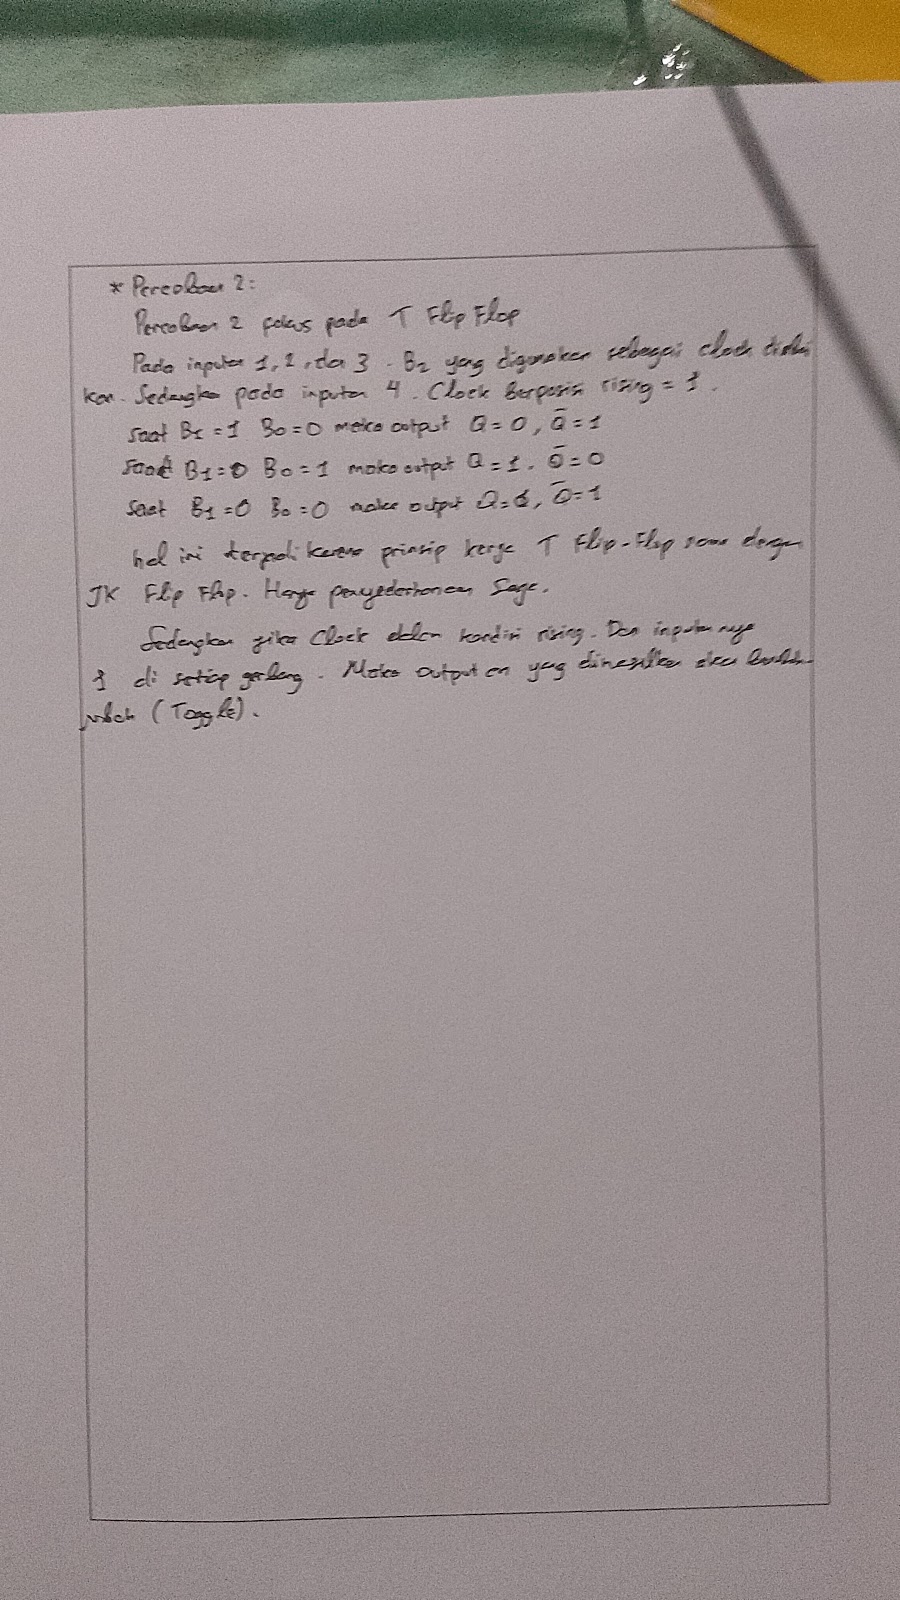 * Percobaan 2:
Percobaan 2 fokus pada T Flip Flop
Pada inputan 1, 2, dan 3. B2 yang digunakan sebagai clock diabai
kan. Sedangkan pada inputan 4. Clock berposisi rising = 1.
saat B1 = 1 B0 = 0 maka output Q = 0, Q̅ = 1
saat B1 = 0 B0 = 1 maka output Q = 1, Q̅ = 0
saat B1 = 0 B0 = 0 maka output Q = Q̅ = 1
hal ini terjadi karena prinsip kerja T Flip-Flop sama dengan
JK Flip Flop. Hanya penyederhanaan saja.
Sedangkan jika Clock dalam kondisi rising. Dan inputannya
1 di setiap gerbang. Maka outputan yang dihasilkan akan berubah-
ubah (Toggle).